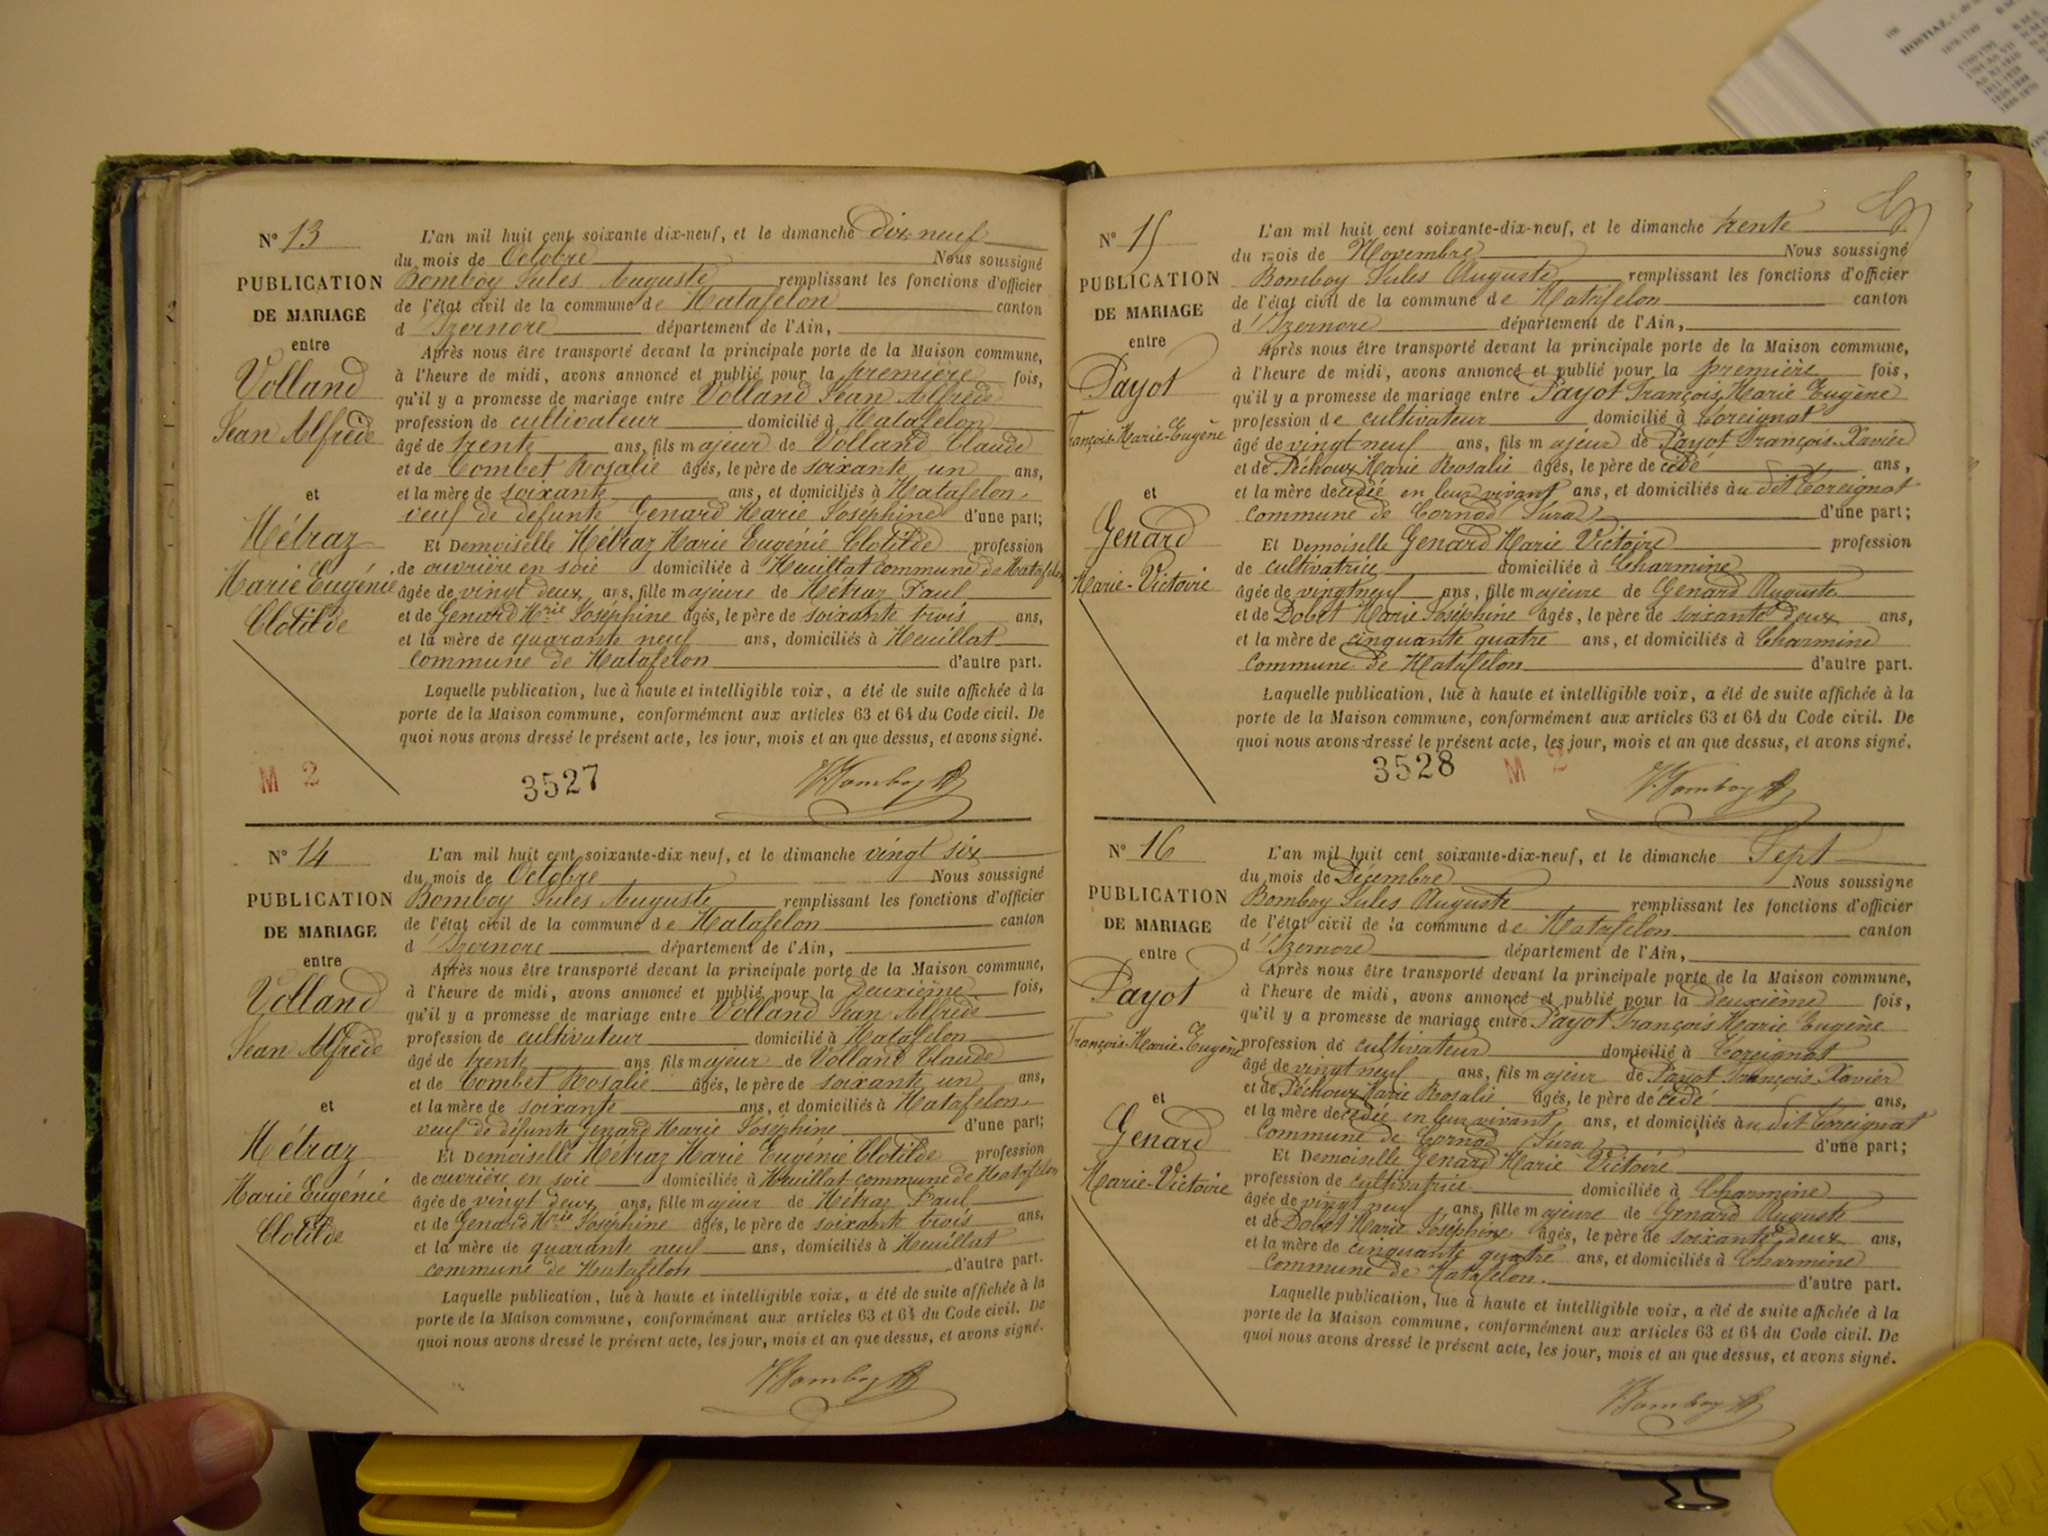 N° 13
PUBLICATION
DE MARIAGE
entre
Volland
Jean Alfrède
et
Métraz
Marie Eugénie
Clotilde
L'an mil huit cent soixante dix-neuf, et le dimanche dix neuf
du mois de Octobre Nous soussigné
Bomboy Jules Auguste remplissant les fonctions d'officier
de l'état civil de la commune de Matafelon canton
d'Izernore département de l'Ain,
Après nous être transporté devant la principale porte de la Maison commune,
à l'heure de midi, avons annoncé et publié pour la première fois,
qu'il y a promesse de mariage entre Volland Jean Alfrède
profession de cultivateur domicilié à Matafelon
âgé de trente ans, fils majeur de Volland Claude
et de Combet Rosalie âgés, le père de soixante un ans,
et la mère de soixante ans, et domiciliés à Matafelon,
veuf de défunte Genard Marie Joséphine d'une part;
Et Demoiselle Métraz Marie Eugénie Clotilde profession
de ouvrière en soie domiciliée à Heuillat commune de Matafelon
âgée de vingt deux ans, fille majeure de Métraz Paul
et de Genard Mrie Joséphine âgés, le père de soixante trois ans,
et la mère de quarante neuf ans, domiciliés à Heuillat
commune de Matafelon d'autre part.
Laquelle publication, lue à haute et intelligible voix, a été de suite affichée à la
porte de la Maison commune, conformément aux articles 63 et 64 du Code civil. De
quoi nous avons dressé le présent acte, les jour, mois et an que dessus, et avons signé.
M 2
3527
Bomboy
N° 14
PUBLICATION
DE MARIAGE
entre
Volland
Jean Alfrède
et
Métraz
Marie Eugénie
Clotilde
L'an mil huit cent soixante-dix neuf, et le dimanche vingt six
du mois de Octobre Nous soussigné
Bomboy Jules Auguste remplissant les fonctions d'officier
de l'état civil de la commune de Matafelon canton
d'Izernore département de l'Ain,
Après nous être transporté devant la principale porte de la Maison commune,
à l'heure de midi, avons annoncé et publié pour la deuxième fois,
qu'il y a promesse de mariage entre Volland Jean Alfrède
profession de cultivateur domicilié à Matafelon
âgé de trente ans fils majeur de Volland Claude
et de Combet Rosalie âgés, le père de soixante un ans,
et la mère de soixante ans, et domiciliés à Matafelon,
veuf de défunte Genard Marie Joséphine d'une part;
Et Demoiselle Métraz Marie Eugénie Clotilde profession
de ouvrière en soie domiciliée à Heuillat commune de Matafelon
âgée de vingt deux ans, fille majeur de Métraz Paul
et de Genard Mrie Joséphine âgés, le père de soixante trois ans,
et la mère de quarante neuf ans, domiciliés à Heuillat
commune de Matafelon d'autre part.
Laquelle publication, lue à haute et intelligible voix, a été de suite affichée à la
porte de la Maison commune, conformément aux articles 63 et 64 du Code civil. De
quoi nous avons dressé le présent acte, les jour, mois et an que dessus, et avons signé.
Bomboy
N° 15
PUBLICATION
DE MARIAGE
entre
Payot
François-Marie-Eugène
et
Genard
Marie-Victoire
L'an mil huit cent soixante-dix-neuf, et le dimanche trente
du mois de Novembre Nous soussigné
Bomboy Jules Auguste remplissant les fonctions d'officier
de l'état civil de la commune de Matafelon canton
d'Izernore département de l'Ain,
Après nous être transporté devant la principale porte de la Maison commune,
à l'heure de midi, avons annoncé et publié pour la première fois,
qu'il y a promesse de mariage entre Payot François Marie Eugène
profession de cultivateur domicilié à Coreignat
âgé de vingt neuf ans, fils majeur de Payot François-Xavier
et de Péchoux Marie Rosalie âgés, le père de cédé ans,
et la mère decédée en leur vivant ans, et domiciliés à u dit Coreignat
commune de Cornod (Jura) d'une part;
Et Demoiselle Genard Marie Victoire profession
de cultivatrice domiciliée à Charmine
âgée de vingt neuf ans, fille majeure de Genard Auguste
et de Dobet Marie Joséphine âgés, le père de soixante deux ans,
et la mère de cinquante quatre ans, et domiciliés à Charmine
commune de Matafelon d'autre part.
Laquelle publication, lue à haute et intelligible voix, a été de suite affichée à la
porte de la Maison commune, conformément aux articles 63 et 64 du Code civil. De
quoi nous avons dressé le présent acte, les jour, mois et an que dessus, et avons signé.
3528
M 2
Bomboy
N° 16
PUBLICATION
DE MARIAGE
entre
Payot
François-Marie-Eugène
et
Genard
Marie-Victoire
L'an mil huit cent soixante-dix-neuf, et le dimanche Sept
du mois de Décembre Nous soussigné
Bomboy Jules Auguste remplissant les fonctions d'officier
de l'état civil de la commune de Matafelon canton
d'Izernore département de l'Ain,
Après nous être transporté devant la principale porte de la Maison commune,
à l'heure de midi, avons annoncé et publié pour la deuxième fois,
qu'il y a promesse de mariage entre Payot François Marie Eugène
profession de cultivateur domicilié à Coreignat
âgé de vingt neuf ans, fils majeur de Payot François Xavier
et de Péchoux Marie Rosalie âgés, le père de cédé ans,
et la mère decédée en leur vivant ans, et domiciliés à u dit Coreignat
Commune de Cornod (Jura) d'une part;
Et Demoiselle Genard Marie Victoire
profession de cultivatrice domiciliée à Charmine
âgée de vingt neuf ans, fille majeure de Genard Auguste
et de Dobet Marie Joséphine âgés, le père de soixante deux ans,
et la mère de cinquante quatre ans, et domiciliés à Charmine
Commune de Matafelon d'autre part.
Laquelle publication, lue à haute et intelligible voix, a été de suite affichée à la
porte de la Maison commune, conformément aux articles 63 et 64 du Code civil. De
quoi nous avons dressé le présent acte, les jour, mois et an que dessus, et avons signé.
Bomboy